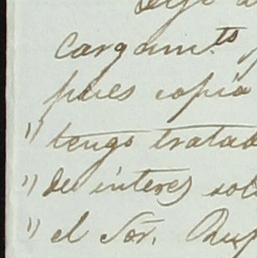 cargam.to
pues copia
" tengo tratado
" de interes sol
" el Sor. Rup